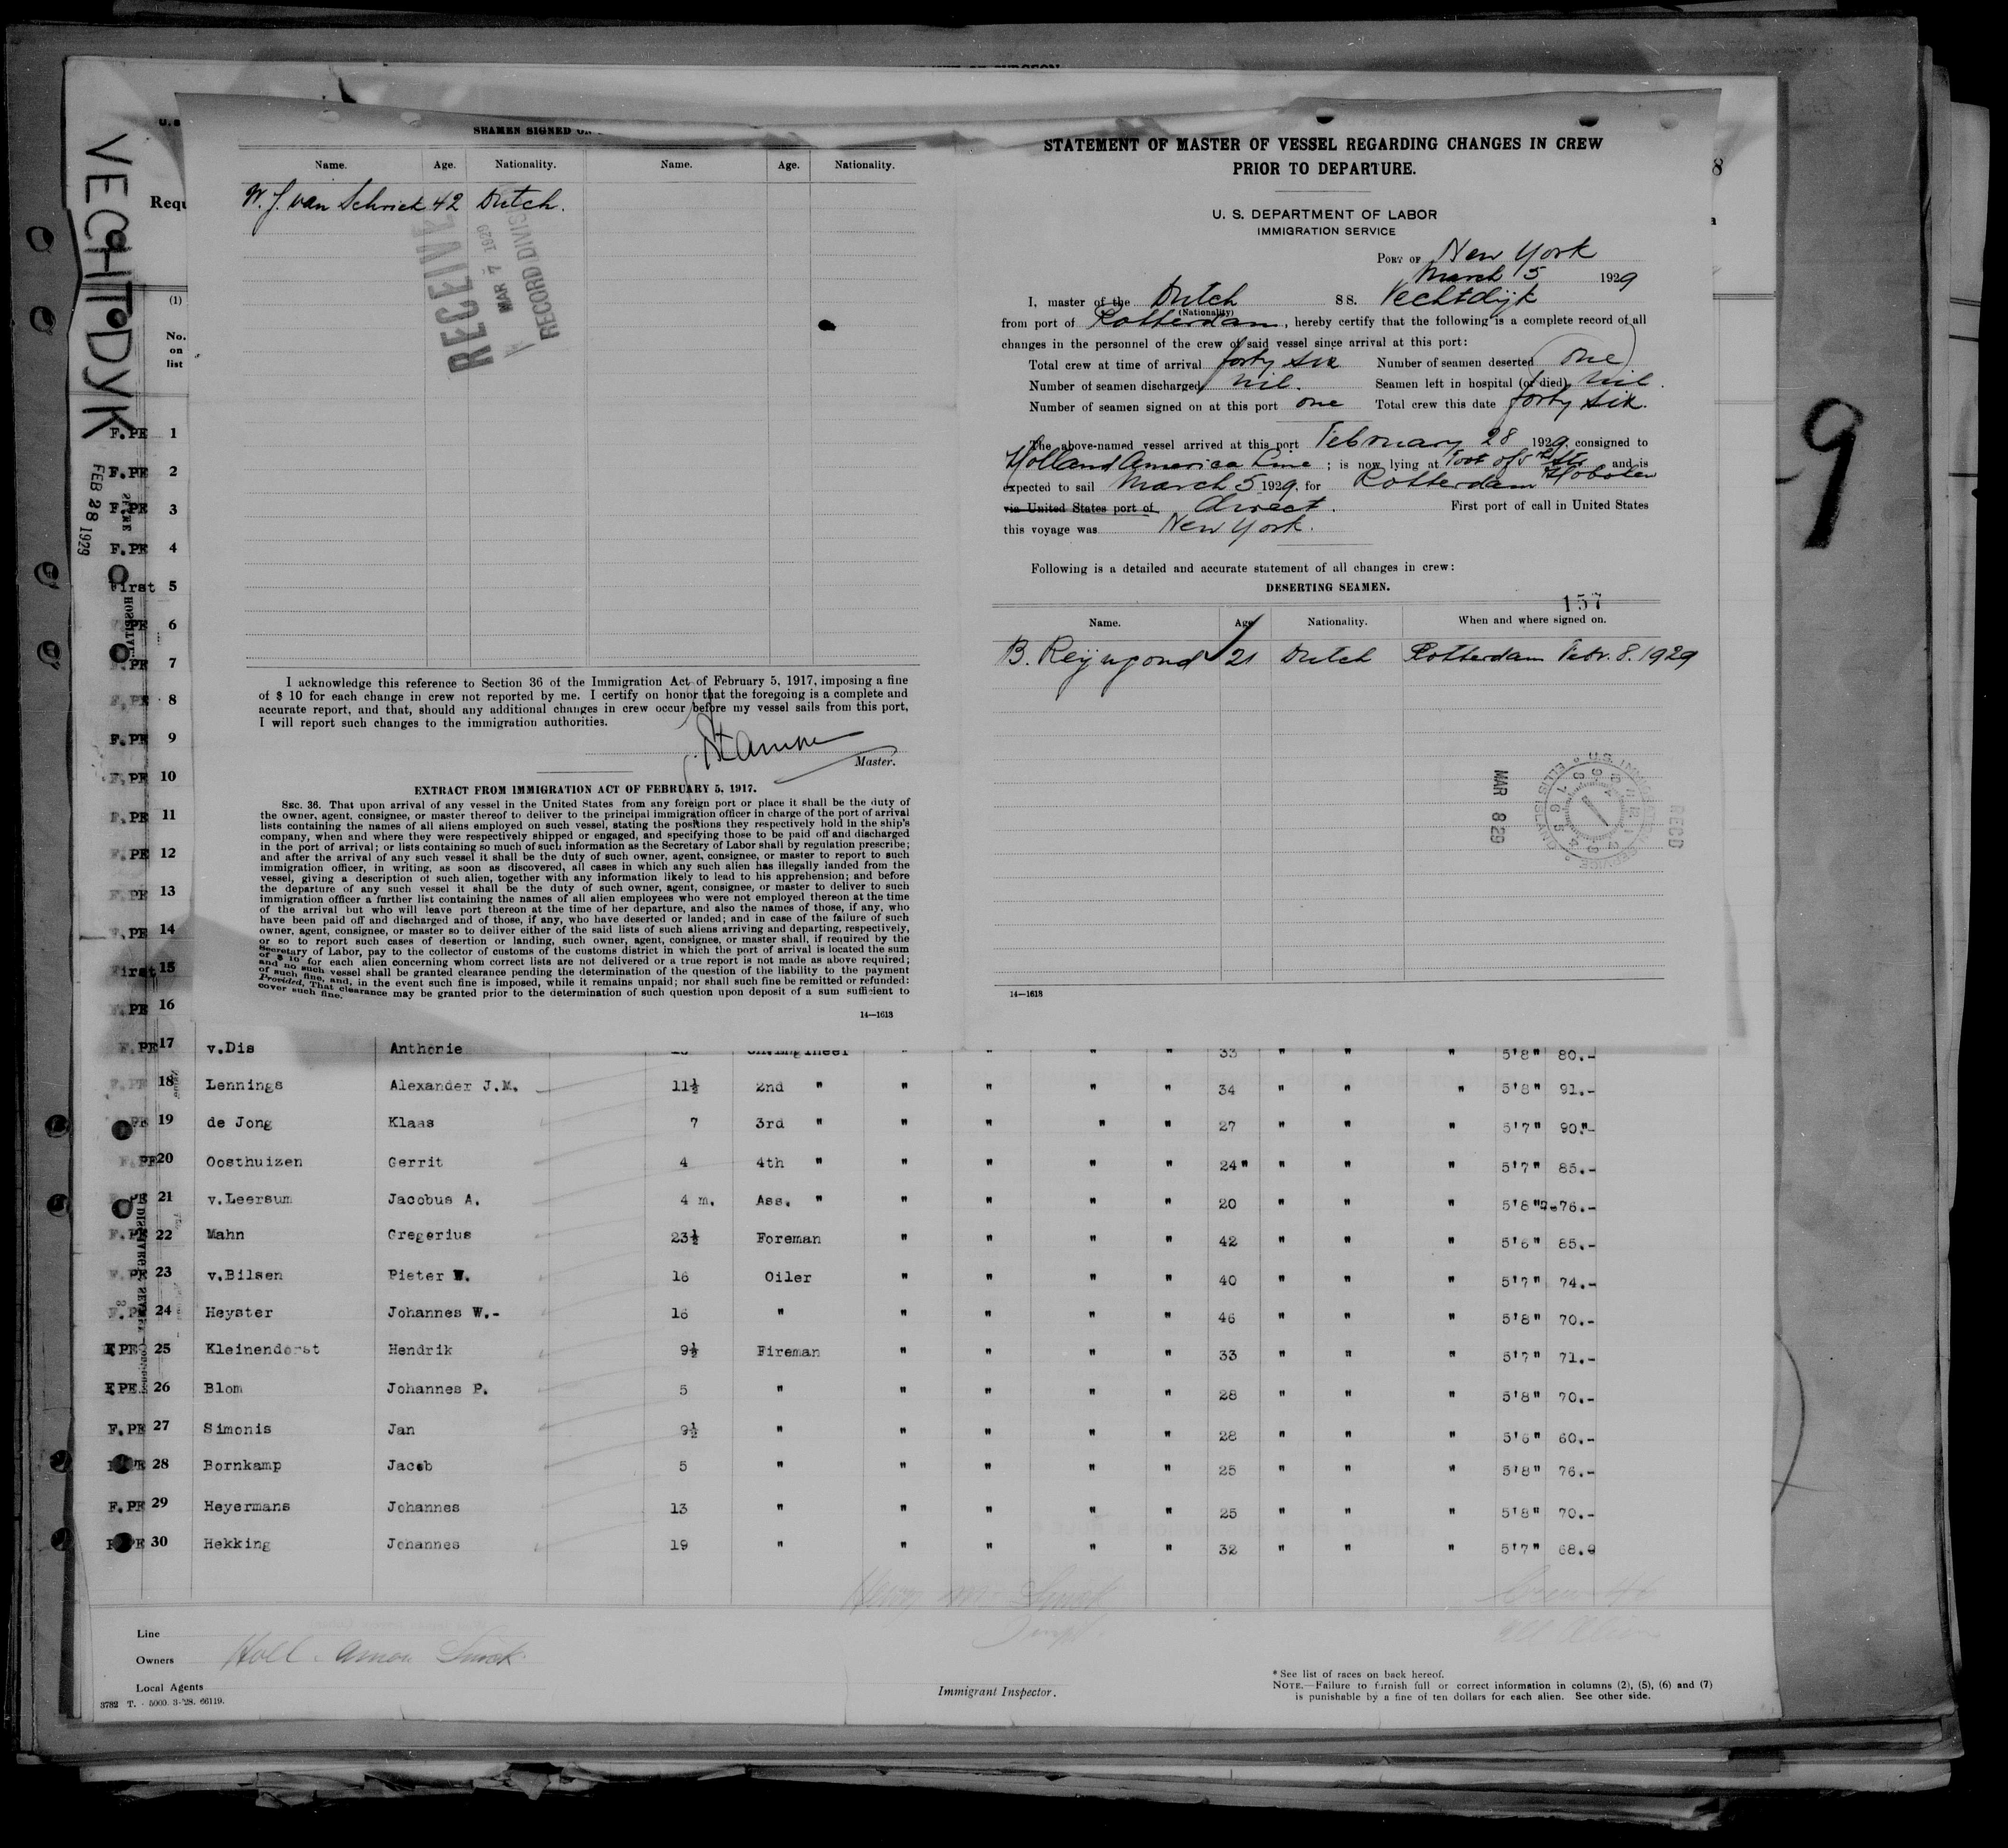 VECHTDYK
FEB 28 1929
SEAMEN SIGNED
Name. Age. Nationality. Name. Age. Nationality.
W. J. van Schrick 42 Dutch.
RECEIVED
MAR 7 1929
RECORD DIVISION
I acknowledge this reference to Section 36 of the Immigration Act of February 5, 1917, imposing a fine
of $ 10 for each change in crew not reported by me. I certify on honor that the foregoing is a complete and
accurate report, and that, should any additional changes in crew occur before my vessel sails from this port,
I will report such changes to the immigration authorities.
Master.
EXTRACT FROM IMMIGRATION ACT OF FEBRUARY 5, 1917.
SEC. 36. That upon arrival of any vessel in the United States from any foreign port or place it shall be the duty of
the owner, agent, consignee, or master thereof to deliver to the principal immigration officer in charge of the port of arrival
lists containing the names of all aliens employed on such vessel, stating the positions they respectively hold in the ship's
company, when and where they were respectively shipped or engaged, and specifying those to be paid off and discharged
in the port of arrival; or lists containing so much of such information as the Secretary of Labor shall by regulation prescribe;
and after the arrival of any such vessel it shall be the duty of such owner, agent, consignee, or master to report to such
immigration officer, in writing, as soon as discovered, all cases in which any such alien has illegally landed from the
vessel, giving a description of such alien, together with any information likely to lead to his apprehension; and before
the departure of any such vessel it shall be the duty of such owner, agent, consignee, or master to deliver to such
immigration officer a further list containing the names of all alien employees who were not employed thereon at the time
of the arrival but who will leave port thereon at the time of her departure, and also the names of those, if any, who
have been paid off and discharged and of those, if any, who have deserted or landed; and in case of the failure of such
owner, agent, consignee, or master so to deliver either of the said lists of such aliens arriving and departing, respectively,
or so to report such cases of desertion or landing, such owner, agent, consignee, or master shall, if required by the
Secretary of Labor, pay to the collector of customs of the customs district in which the port of arrival is located the sum
of $ 10 for each alien concerning whom correct lists are not delivered or a true report is not made as above required;
and no such vessel shall be granted clearance pending the determination of the question of the liability to the payment
of such fine, and, in the event such fine is imposed, while it remains unpaid; nor shall such fine be remitted or refunded:
Provided, That clearance may be granted prior to the determination of such question upon deposit of a sum sufficient to
cover such fine.
14—1618
STATEMENT OF MASTER OF VESSEL REGARDING CHANGES IN CREW
PRIOR TO DEPARTURE.
U. S. DEPARTMENT OF LABOR
IMMIGRATION SERVICE
PORT OF New York
March 5 1929
I, master of the Dutch SS. Vechtdijk
(Nationality)
from port of Rotterdam, hereby certify that the following is a complete record of all
changes in the personnel of the crew of said vessel since arrival at this port:
Total crew at time of arrival forty six Number of seamen deserted one
Number of seamen discharged nil. Seamen left in hospital (or died) nil.
Number of seamen signed on at this port one Total crew this date forty six.
The above-named vessel arrived at this port February 28 1929, consigned to
Holland America Line; is now lying at Foot of 5th St. and is
Hoboken
expected to sail March 5 1929, for Rotterdam
via United States port of direct. First port of call in United States
this voyage was New York.
Following is a detailed and accurate statement of all changes in crew:
DESERTING SEAMEN.
157
Name. Age Nationality. When and where signed on.
B. Reijngoud 21 Dutch Rotterdam Febr. 8. 1929
MAR 8 29
RECD
14—1618
9
8
Requ
(1)
No.
on
list
F.PE 1
F.PE 2
F.PE 3
F.PE 4
First 5
F.PE 6
F.PE 7
F.PE 8
F.PE 9
F.PE 10
F.PE 11
F.PE 12
F.PE 13
F.PE 14
First 15
F.PE 16
F.PE 17 v.Dis Anthonie Engineer " " " 33 " " " 5'8" 80.-
F.PE 18 Lennings Alexander J.M. 11½ 2nd " " " " " 34 " " " 5'8" 91.-
PE 19 de Jong Klaas 7 3rd " " " " " 27 " " " 5'7" 90.-
F.PE 20 Oosthuizen Gerrit 4 4th " " " " " 24 " " " " 5'7" 85.-
PE 21 v.Leersum Jacobus A. 4 m. Ass. " " " " " 20 " " " 5'8" 76.-
F.PE 22 Mahn Gregerius 23½ Foreman " " " " 42 " " " 5'6" 85.-
F.PE 23 v.Bilsen Pieter W. 16 Oiler " " " " 40 " " " 5'7" 74.-
F.PE 24 Heyster Johannes W.- 16 " " " " " 46 " " " 5'8" 70.-
F.PE 25 Kleinendorst Hendrik 9½ Fireman " " " " 33 " " " 5'7" 71.-
F.PE. 26 Blom Johannes P. 5 " " " " " 28 " " " 5'8" 70.-
F.PE 27 Simonis Jan 9½ " " " " " 28 " " " 5'6" 60.-
PE 28 Bornkamp Jacob 5 " " " " " 25 " " " 5'8" 76.-
F.PE 29 Heyermans Johannes 13 " " " " " 25 " " " 5'8" 70.-
PE 30 Hekking Johannes 19 " " " " " 32 " " " 5'7" 68.
Line
Owners Holl. Amer
Local Agents
3782 T. - 5000. 3-'28. 66119.
Immigrant Inspector.
* See list of races on back hereof.
NOTE.—Failure to furnish full or correct information in columns (2), (5), (6) and (7)
is punishable by a fine of ten dollars for each alien. See other side.